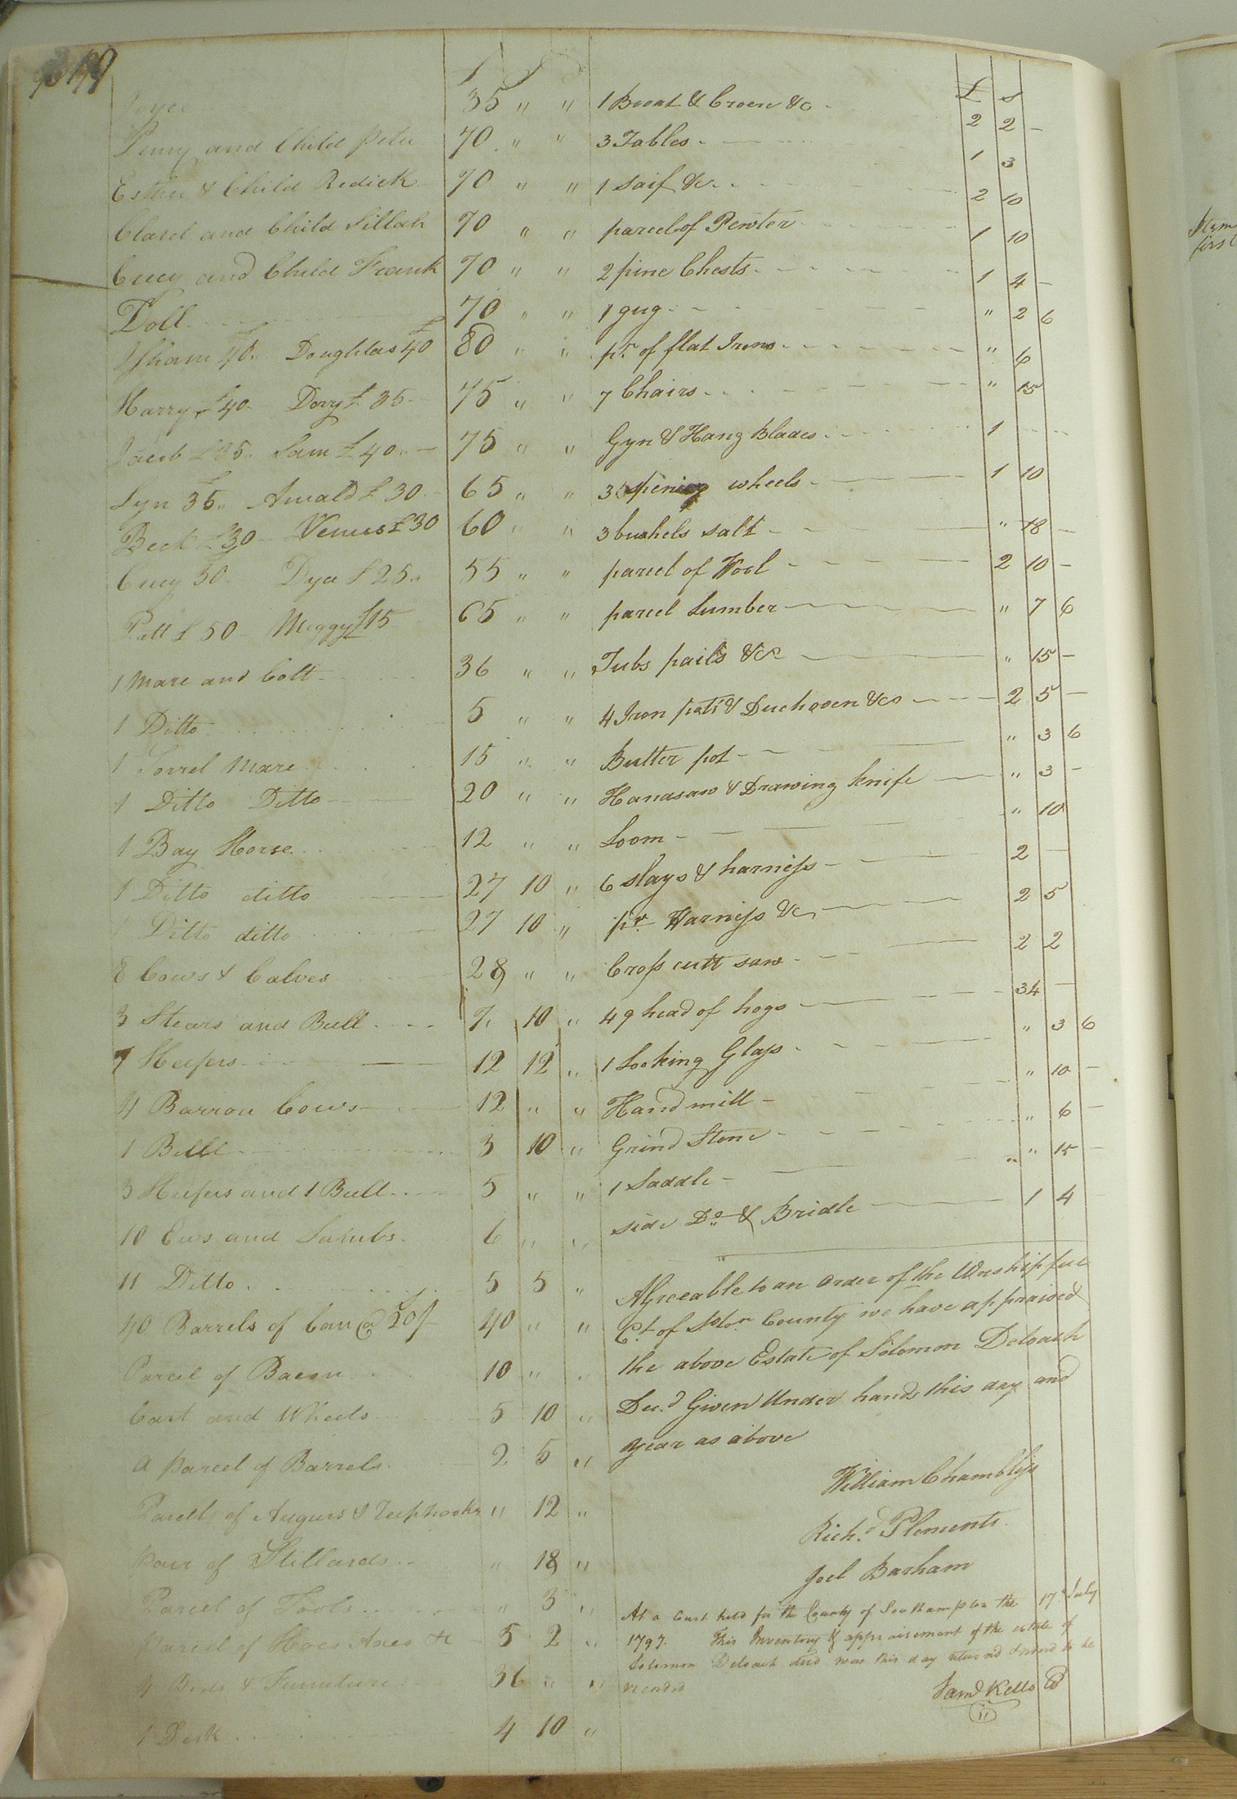 £
Joyce 35 " "
Penny and Child Peter 70 " "
Esther & Child Redick 70 " "
Clarel and Child Sillah 70 " "
Crecy and Child Frank 70 " "
Doll 70 " "
Isham £40 Doughlas £40 80 " "
Harry £40 Davy £35 75 " "
Jacob £35 Sam £40 75 " "
Lyn £35 £30 65 " "
Beck £30 Venus £30 60 " "
Crecy 30 Dye £25 55 " "
Patt £50 Meggy £15 65 " "
1 Mare and Colt 36 " "
1 Ditto 5 " "
1 Sorrel Mare 15 " "
1 Ditto Ditto 20 " "
1 Bay Horse 12 " "
1 Ditto ditto 27 10 "
Ditto ditto 27 10 "
8 Cows & Calves 28 " "
3 Stears and Bull 7 10 "
7 Heifers 12 12 "
4 Barron Cows 12 " "
1 Bull 3 10 "
3 Heifers and 1 Bull 5 " "
10 Ews and Lambs 6 " "
11 Ditto 5 5 "
40 Barrels of Corn @ 20/ 40 " "
Parcel of Bacon 10 " "
Cart and Wheels 5 10 "
A parcel of Barrels 2 5 "
Parcell of Augurs & Reephooks " 12 "
pair of Stillards " 18 "
Parcel of Tools " 3 "
Parcel of Hoes Axes &c 5 2 "
4 Beds & Furniture 36 " "
1 Desk 4 10 "
£ s
1 & &c 2 2 -
3 Tables 1 3
1 saif &c 2 10
parcel of Pewter 1 10
2 pine Chests 1 4 -
1 gug " 2 6
pr of flat Irons " 6
7 Chairs " 15
Gyn & Hang Blades 1
3 wheels 1 10
3 bushels salt " 18 -
parcel of Wool 2 10 -
parcel Lumber " 7 6
Tubs pails &c " 15 -
4 Iron pots & Duchoven &c 2 5 -
Butter pot " 3 6
Handsaw & Drawing knife " 3 -
Loom " 10
6 slays & harness 2 -
pr Harness &c 2 5
Cross cutt saw 2 2
49 head of hogs 34 -
1 Looking Glass " 3 6
Hand mill " 10 -
Grind Stone " 6 -
1 Saddle " 15 -
side Do & Bridle 1 4
Agreeable to an order of the Worshipfull
Ct of Coun County we have appraised
the above Estate of Solomon Deloach
Decd Given Under hands this day and
year as above
William Chambliss
Richd Clements
Joel Barham
At a Court held for the County of Southampton the 17 July
1797. This Inventory & appraisement of the estate of
Solomon Deloach decd was this day returned & ordered to be
recorded
Saml Kello